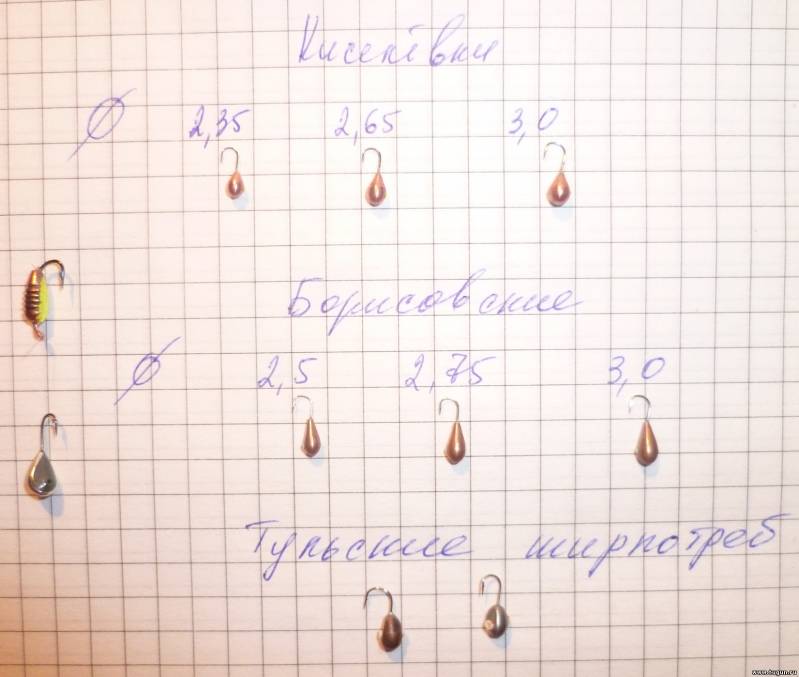 Киселёвки
⌀ 2,35 2,65 3,0
Борисовские
⌀ 2,5 2,75 3,0
Тульские ширпотреб
www.tugun.ru